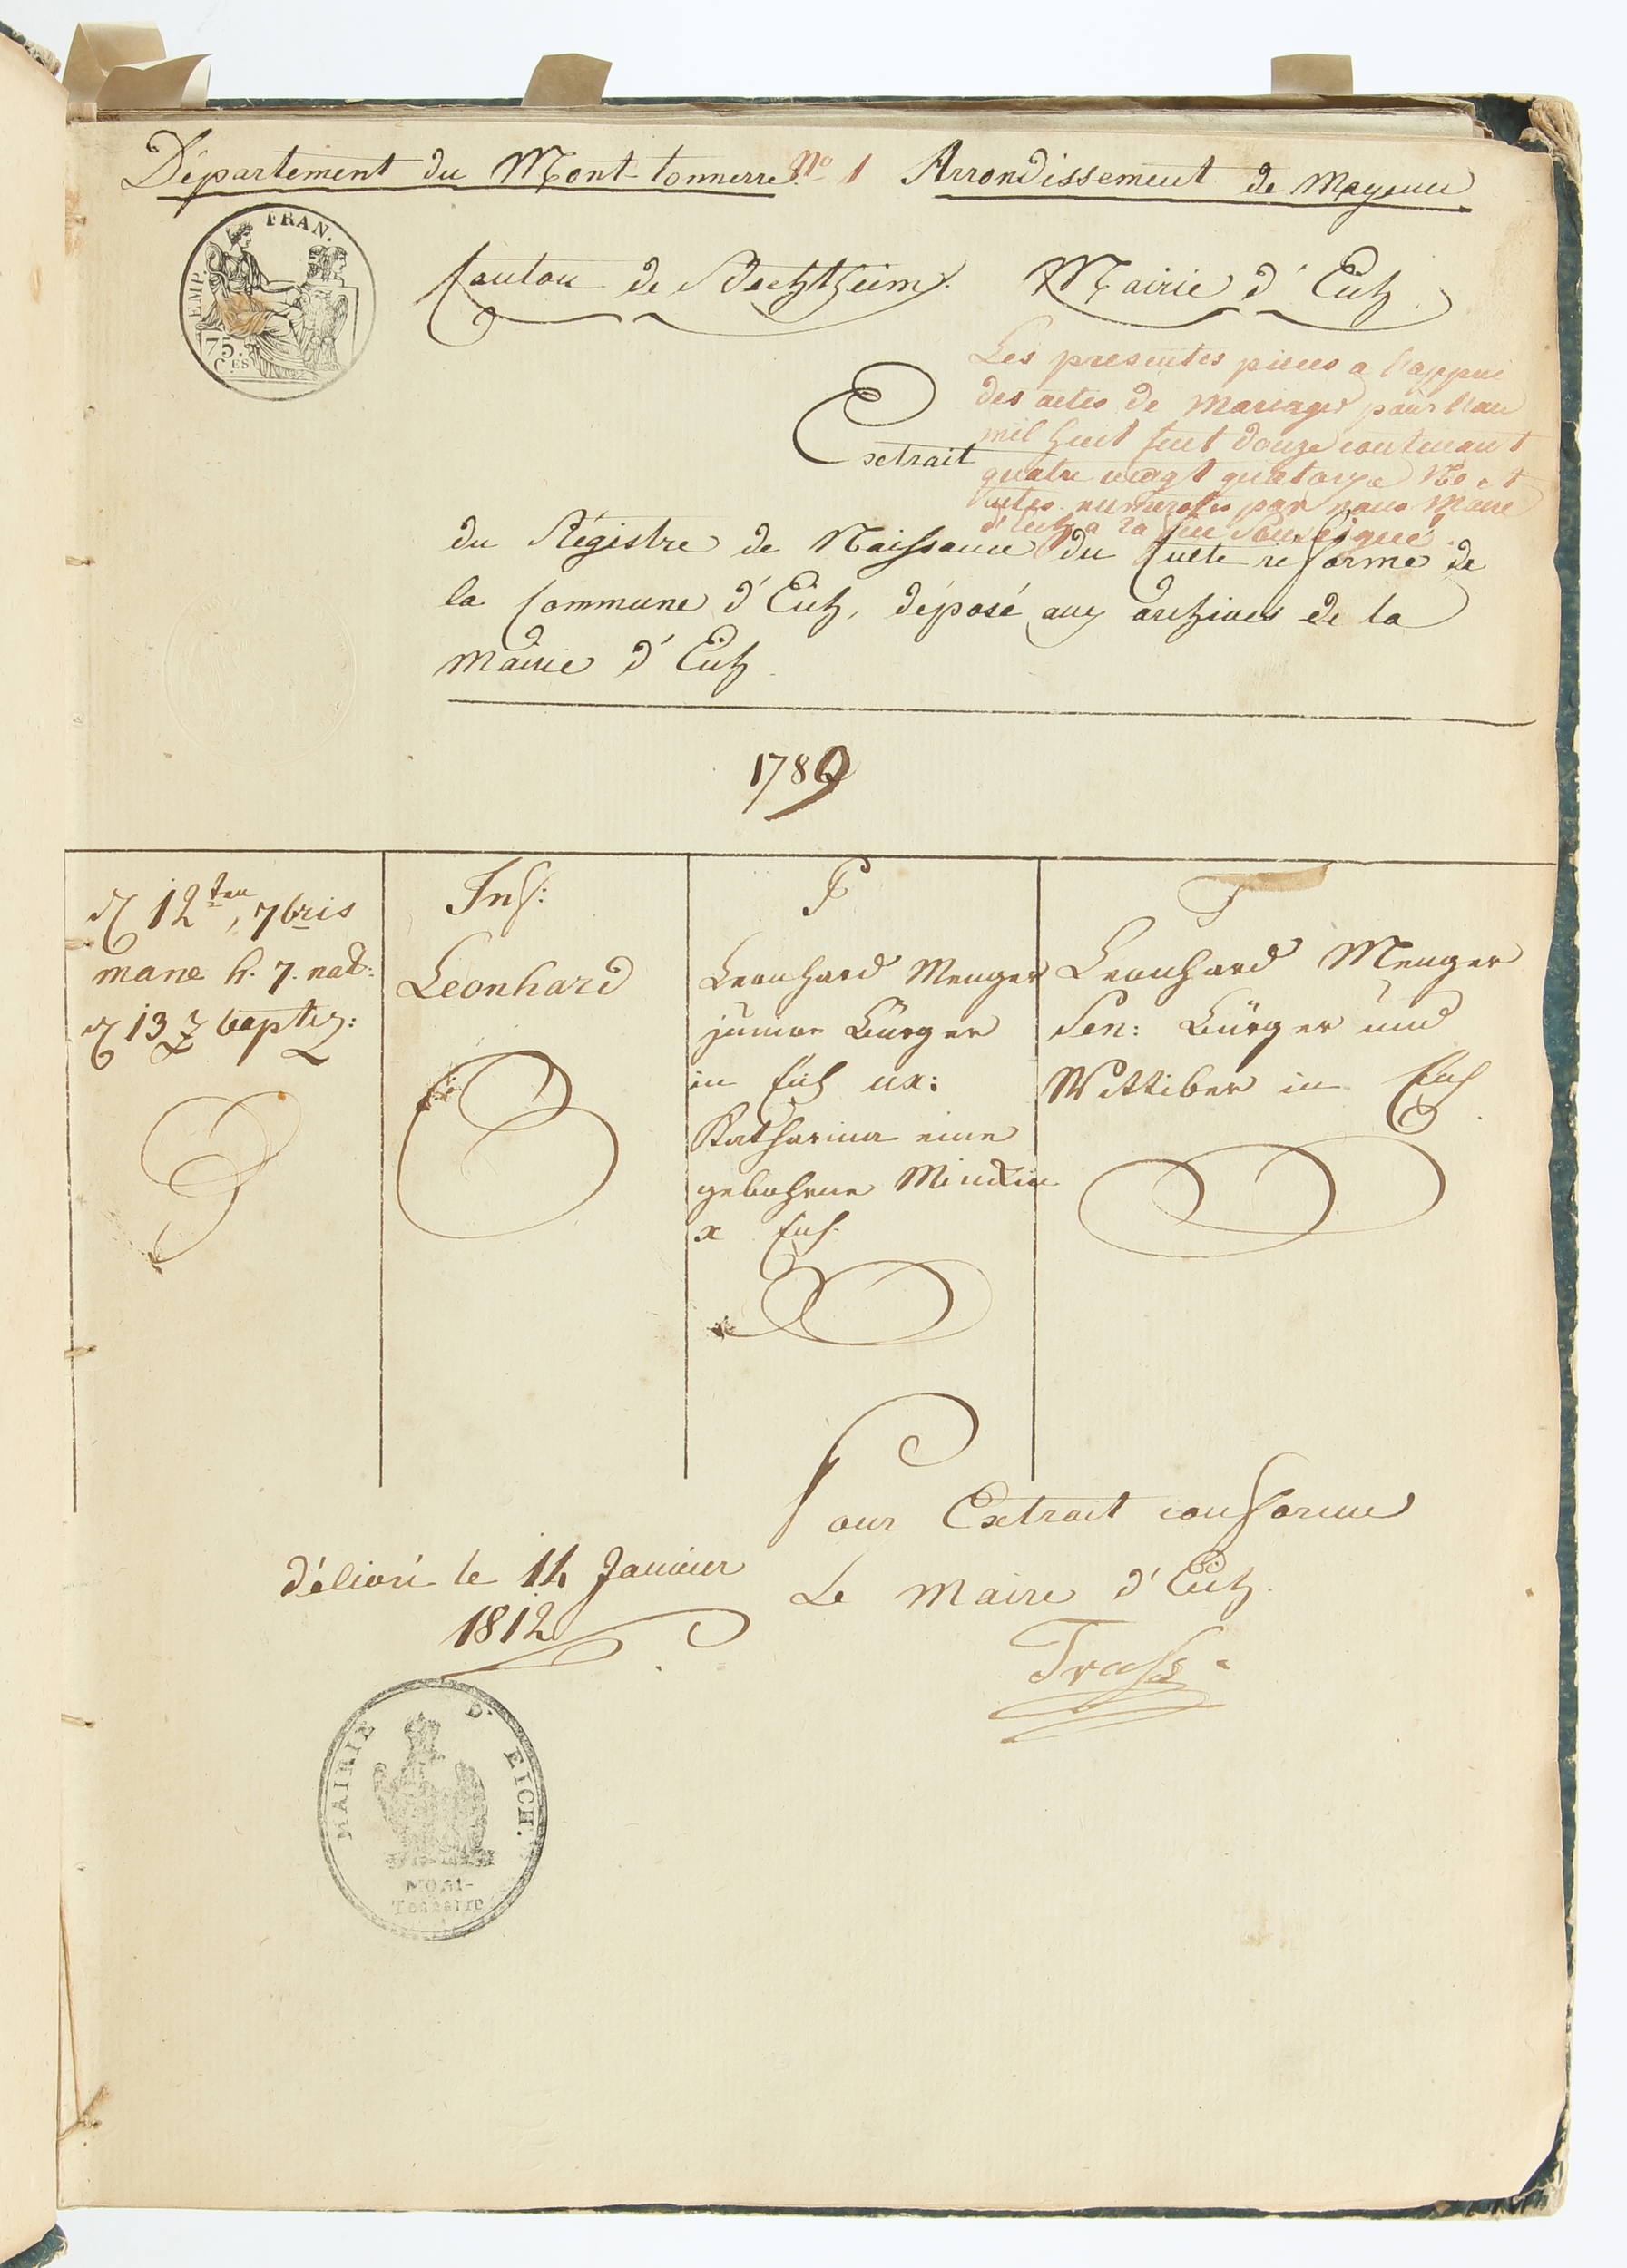 Département du Mont-tonnerre. No 1 Arrondissement de Mayence
EMP. FRAN.
75.
C.ES
Canton de Bechtheim. Mairie d'Eich.
Les presentes pieces a l'appui
des actes de Mariages pour l'an
mil huit cent douze contenant
Extrait
quatre vingt quatorze No et
numerotés par nous Maire
d'Eich a la fin Soussigné.
du Régistre de Naissance du Culte reformé de
la Commune d'Eich, déposé aux archives de la
Mairie d'Eich.
1789
d 12ten, 7bris
mane h. 7. nat:
d 13 baptiz:
Inf:
Leonhard
P
Leonhard Menger
junior Bürger
in Eich ux:
Katharina eine
gebohrne
x Eich
T
Leonhard Menger
Sen: Bürger und
Wittiber in Eich.
Pour Extrait conforme
délivré le 14 Janvier
1812
Le Maire d'Eich.
MAIRIE D'. EICH.
MONT-
Tonnerre